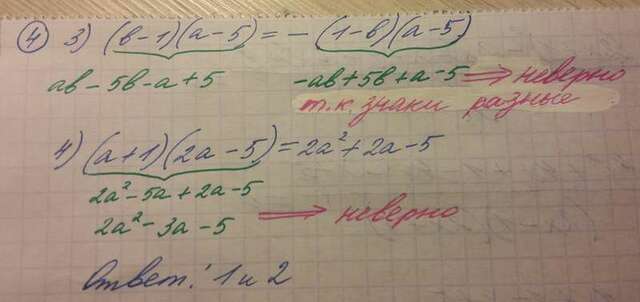 ④ 3) (в-1)(а-5) = -(1-в)(а-5)
ав-5в-а+5 -ав+5в+а-5 ⇒ неверно
т.к. знаки разные
4) (а+1)(2а-5) = 2а²+2а-5
2а²-5а+2а-5
2а²-3а-5 ⇒ неверно
Ответ: 1 и 2